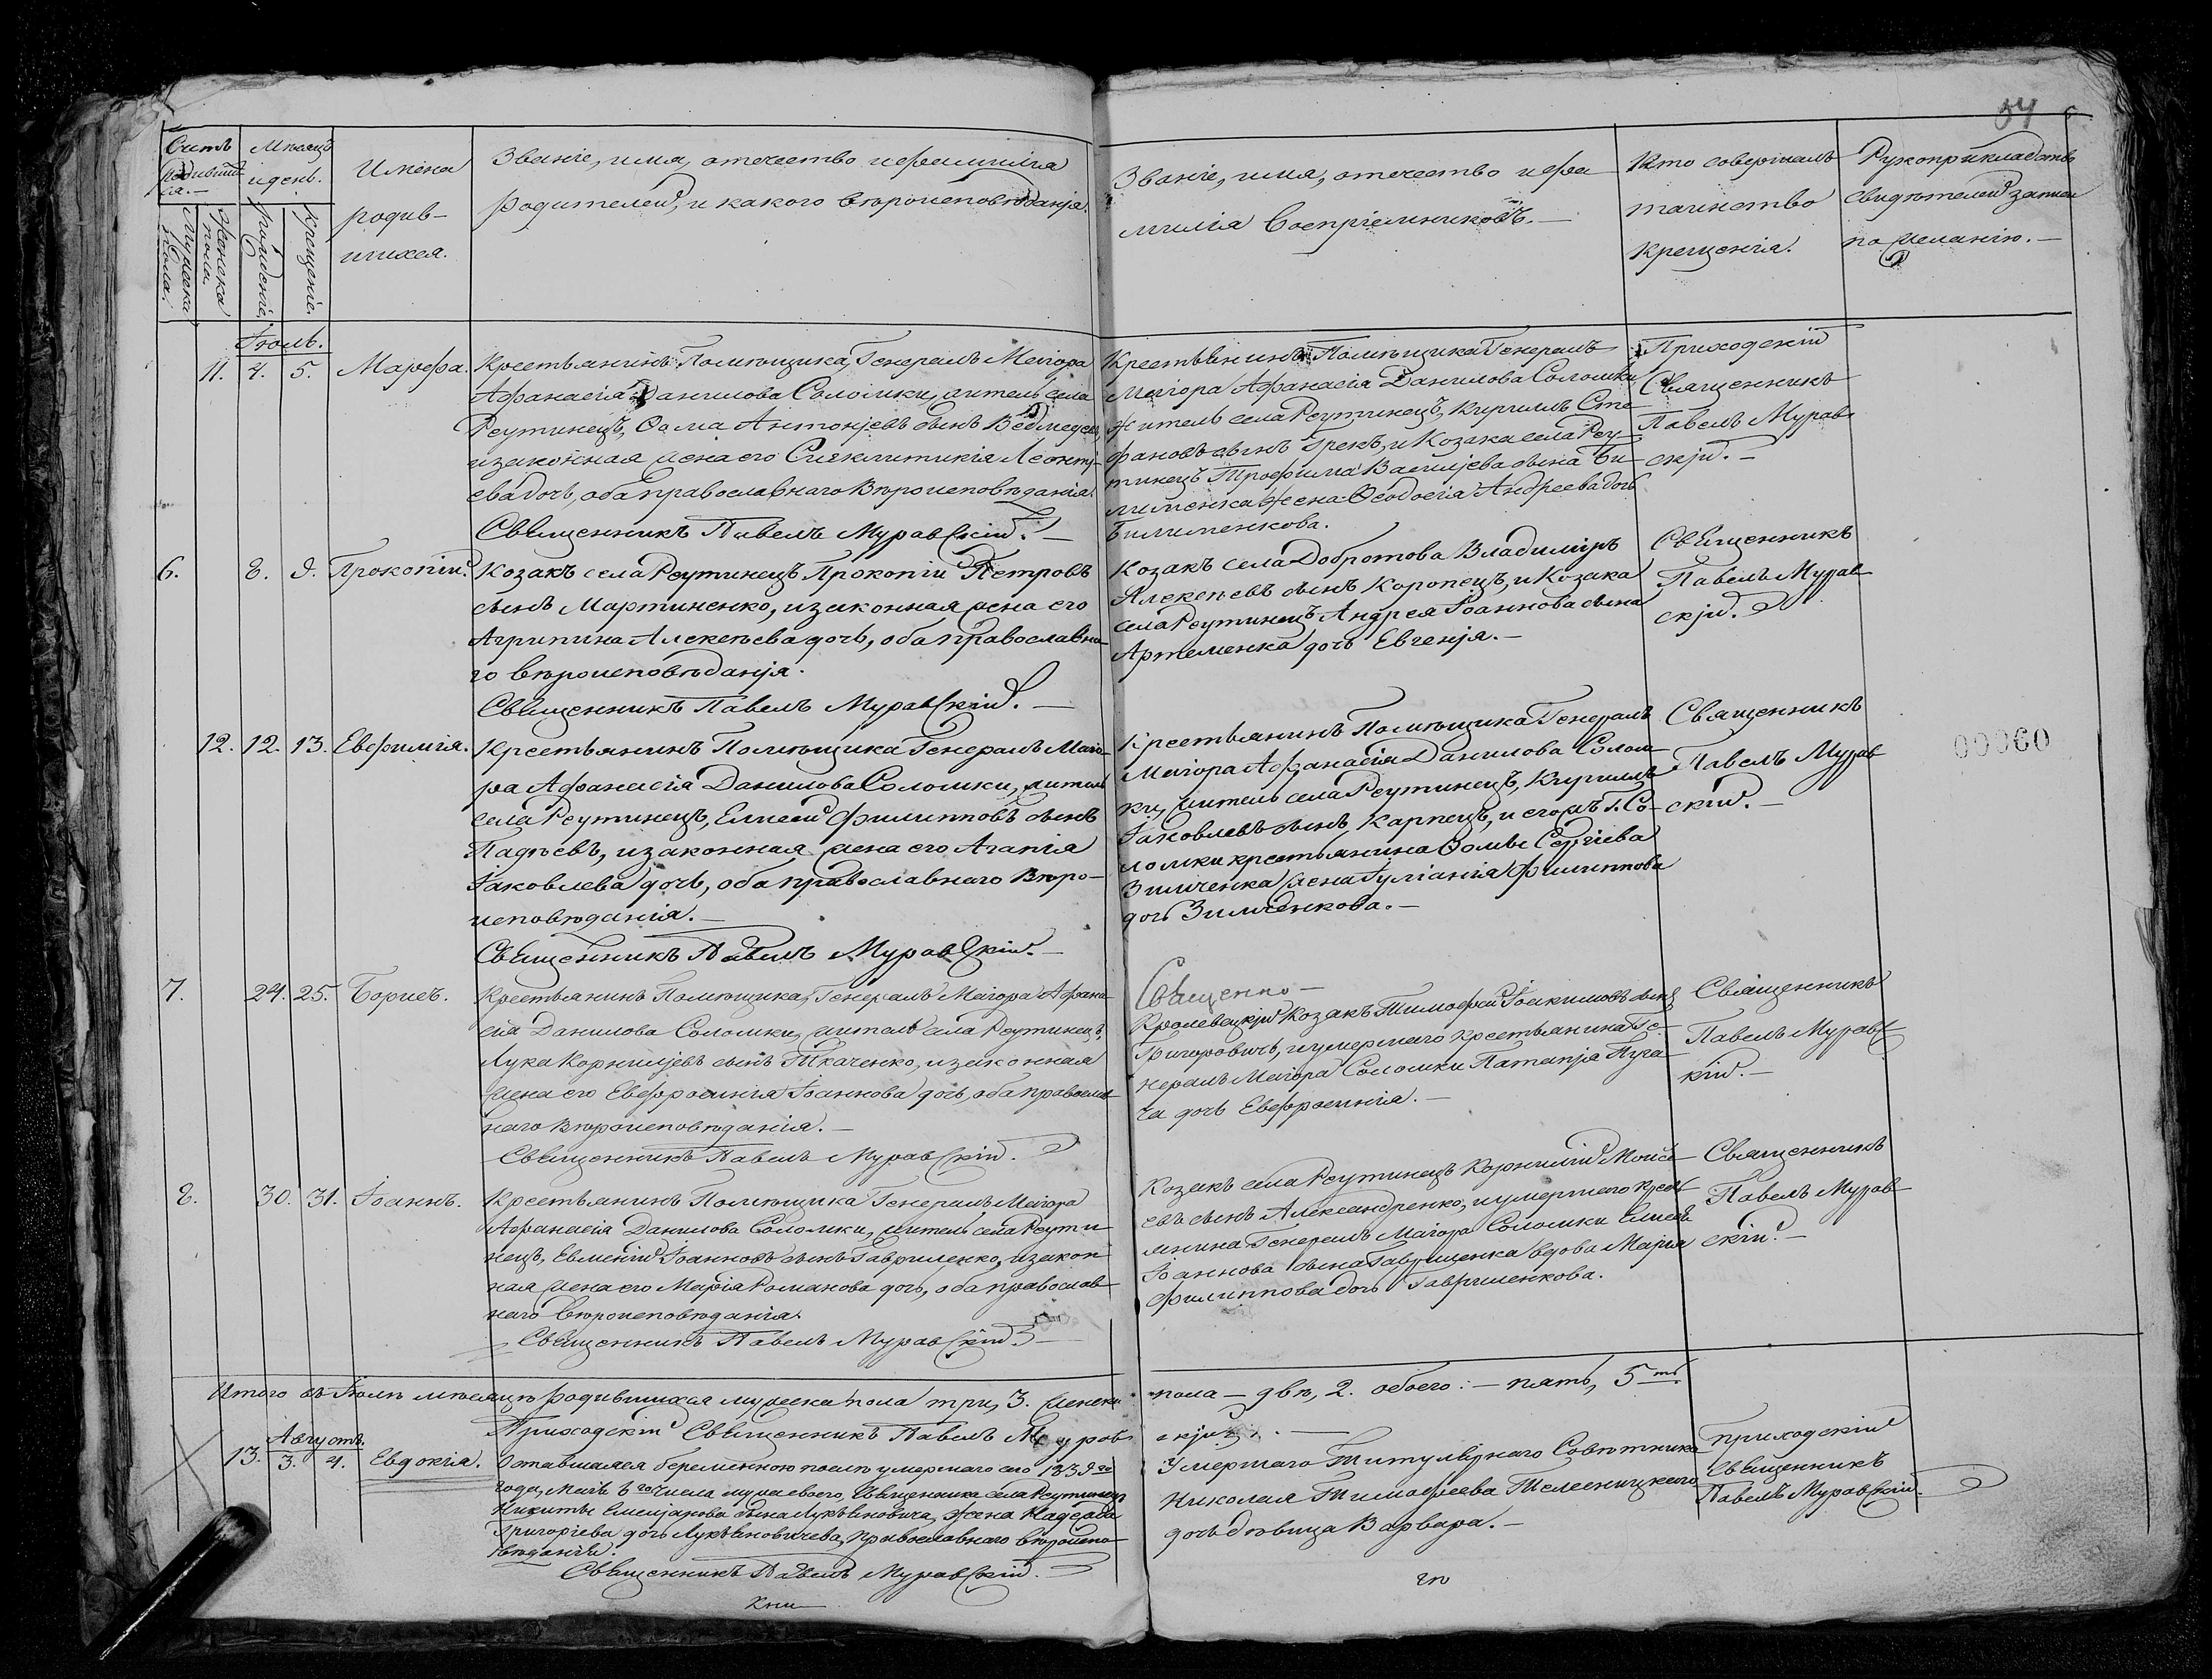 54
Счетъ
родивших
ся.
Мѣсяцъ
и день.
Имена
родив-
шихся.
Званіе, имя, отечество и фамилія
родителей, и какого вѣроисповѣданія.
Званіе, имя, отечество и фа
милія Воспріемниковъ.
Кто совершалъ
таинство
крещенія.
Рукоприкладство
свидѣтелей записи
по желанію.
Мужеска
пола.
Женска
пола.
Рожденіе.
Крещеніе.
Іюль.
11. 4. 5. Марфа.
Крестьянинъ Помѣщика Генералъ Маіора
Афанасія Данилова Соломки, житель села
Реутинецъ, Фома Антоніевъ сынъ
и законная жена его Сигклитикія Леонті-
ева дочь, оба православнаго Вѣроисповѣданія.
Священникъ Павелъ Муравскій.
Крестьянинъ Помѣщика Генералъ
Маіора Афанасія Данилова Соломки
житель села Реутинецъ, Кириллъ Сте
фановъ сынъ Грекъ, и Козака села Реу-
тинецъ Трофима Василіева сына Би-
лименка жена Феодосія Андреева дочь
Билименкова.
Приходскій
Священникъ
Павелъ Мурав
скій.
6. 8. 9. Прокопій.
Козакъ села Реутинецъ Прокопій Петровъ
сынъ Мартиненко, и законная жена его
Агрипина Алексѣева дочь, оба православна
го вѣроисповѣданія.
Священникъ Павелъ Муравскій.
Козакъ села Добротова Владиміръ
Алексѣевъ сынъ Коропецъ, и Козака
села Реутинецъ Андрея Іоаннова сына
Артеменка дочь Евгенія.
Священникъ
Павелъ Мурав
скій.
12. 12. 13. Евфимія.
Крестьянинъ Помѣщика Генералъ Маіо-
ра Афанасія Данилова Соломки, житель
села Реутинецъ, Елисей Филипповъ сынъ
и законная жена его Агапія
Іаковлева дочь, оба православнаго Вѣро-
исповѣданія.
Священникъ Павелъ Муравскій.
Крестьянинъ Помѣщика Генералъ
Маіора Афанасія Данилова Солом
ки, житель села Реутинецъ, Кириллъ
Іаковлевъ сынъ Карпецъ, и г. Со-
ломки крестьянина Фомы Сергіева
Зимченка жена Іуліанія Филиппова
дочь Зимченкова.
Священникъ
Павелъ Мурав
скій.
00060
7. 24. 25. Борисъ.
Крестьянинъ Помѣщика, Генералъ Маіора Афана
сія Данилова Соломки, житель села Реутинецъ,
Лука Корниліевъ сынъ Ткаченко, и законная
жена его Евфросинія Іоаннова дочь, оба православ
наго Вѣроисповѣданія.
Священникъ Павелъ Муравскій.
Священно-
Кролевецкій Козакъ Тимофей Іоакимовъ сынъ
Григоровичъ, и умершаго крестьянина Ге-
нералъ Маіора Соломки Патапія Пуга
ча дочь Евфросинія.
Священникъ
Павелъ Муравс
кій.
8. 30. 31. Іоаннъ.
Крестьянинъ Помѣщика Генералъ Маіора
Афанасія Данилова Соломки, житель села Реути
нецъ, Евменій Іоанновъ сынъ Гавриленко, и закон
ная жена его Марія Романова дочь, оба православ
наго Вѣроисповѣданія.
Священникъ Павелъ Муравскій.
Козакъ села Реутинецъ Корнилій Моисе
евъ сынъ Александренко, и умершаго крест
янина Генералъ Маіора Соломки Елисея
Іоаннова сына Гавриленка вдова Марія
Филиппова дочь Гавриленкова.
Священникъ
Павелъ Мурав
скій.
Итого въ Іюлѣ мѣсяцѣ родившихся мужеска пола три, 3. женска
пола - двѣ, 2. обоего: - пять, 5ть.
Приходскій Священникъ Павелъ Мурав
скій.
Августъ.
13. 3. 4. Евдокія.
Оставшаяся беременною послѣ умершаго сего 1839го
года, Маія 6го числа мужа своего, Священника села Реутинецъ
Никиты Емеліанова сына Лукьяновича, жена Надежда
Григоріева дочь Лукьяновичева, православнаго вѣроиспо-
вѣданія.
Священникъ Павелъ Муравскій.
Умершаго Титулярнаго Совѣтника
Николая Тимофѣева Телесницкаго
дочь дѣвица Варвара.
Приходскій
Священникъ
Павелъ Муравскій.